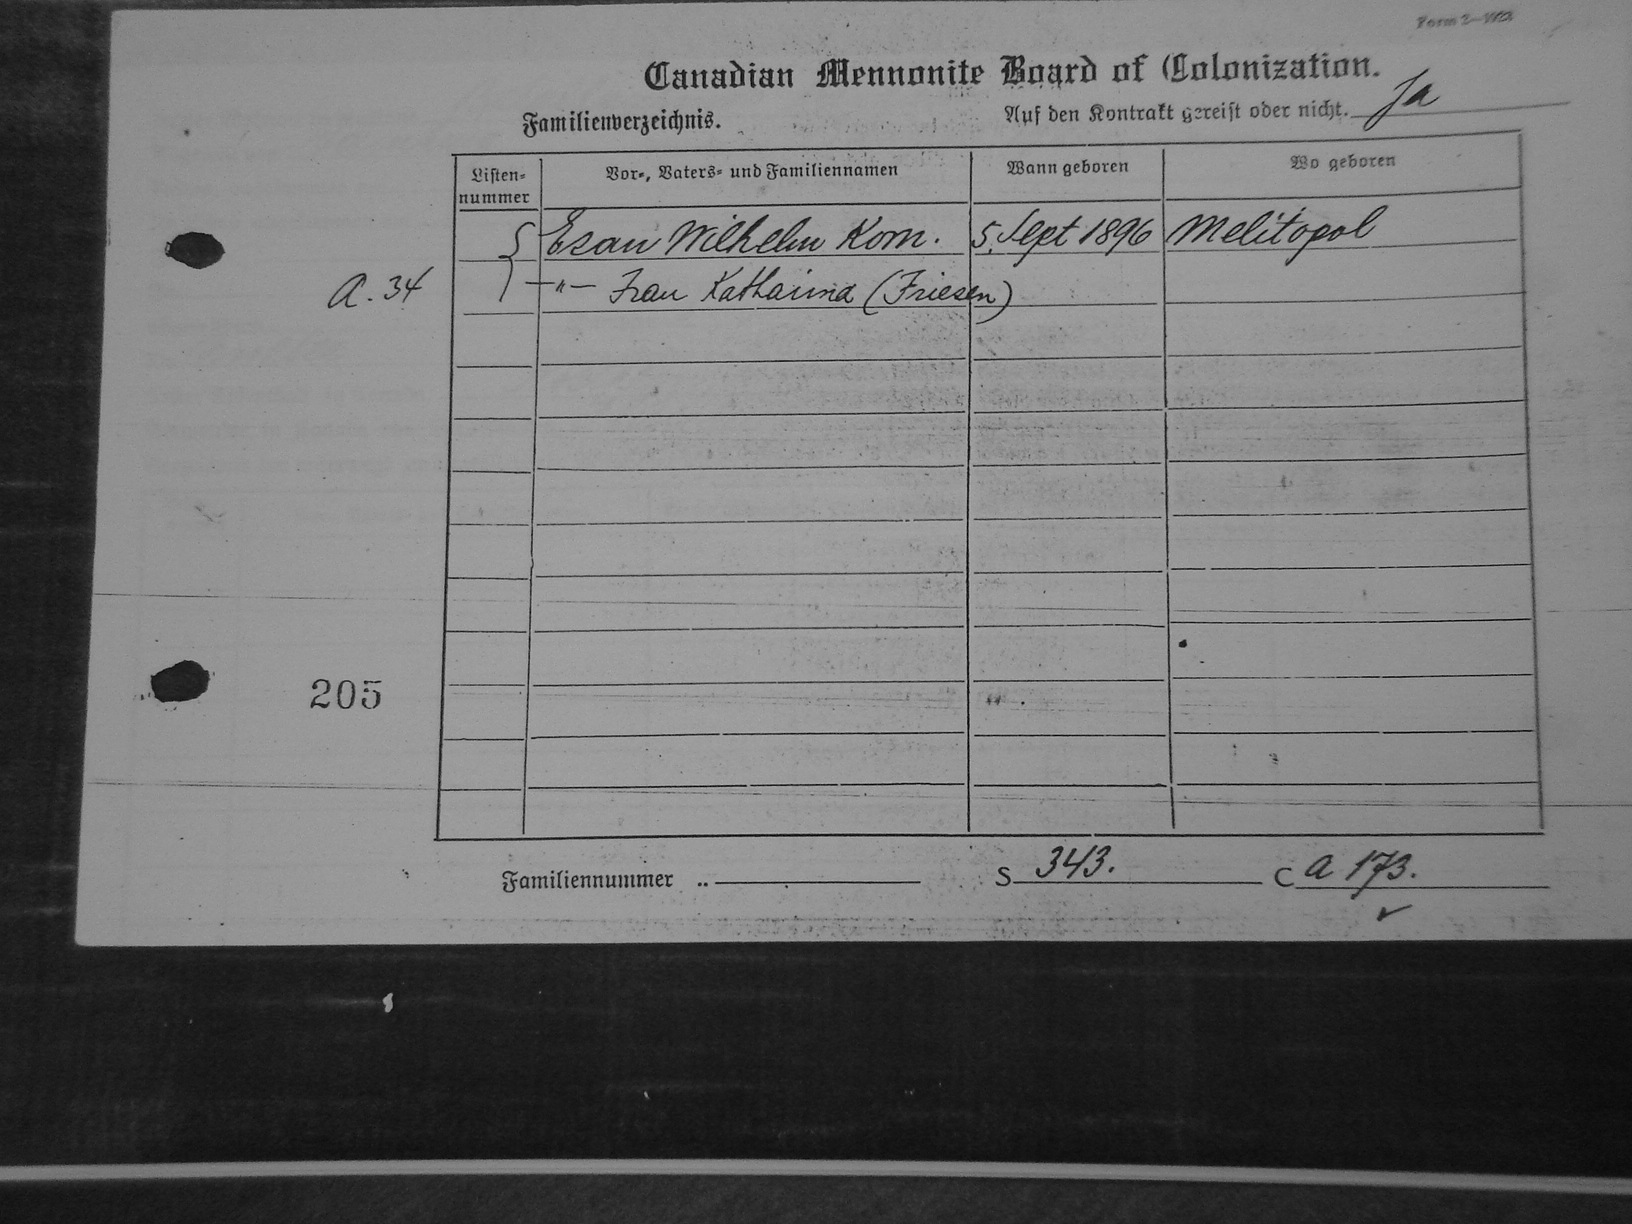 Form 2—1923
Canadian Mennonite Board of Colonization.
Familienverzeichnis.
Auf den Kontrakt gereist oder nicht. Ja
Listen-
nummer
Vor-, Vaters- und Familiennamen
Wann geboren
Wo geboren
Esau Wilhelm Korn. 5. Sept 1896 Melitopol
A. 34
—"— Frau Katharina (Friesen)
205
Familiennummer ..
S 343.
C a 173.